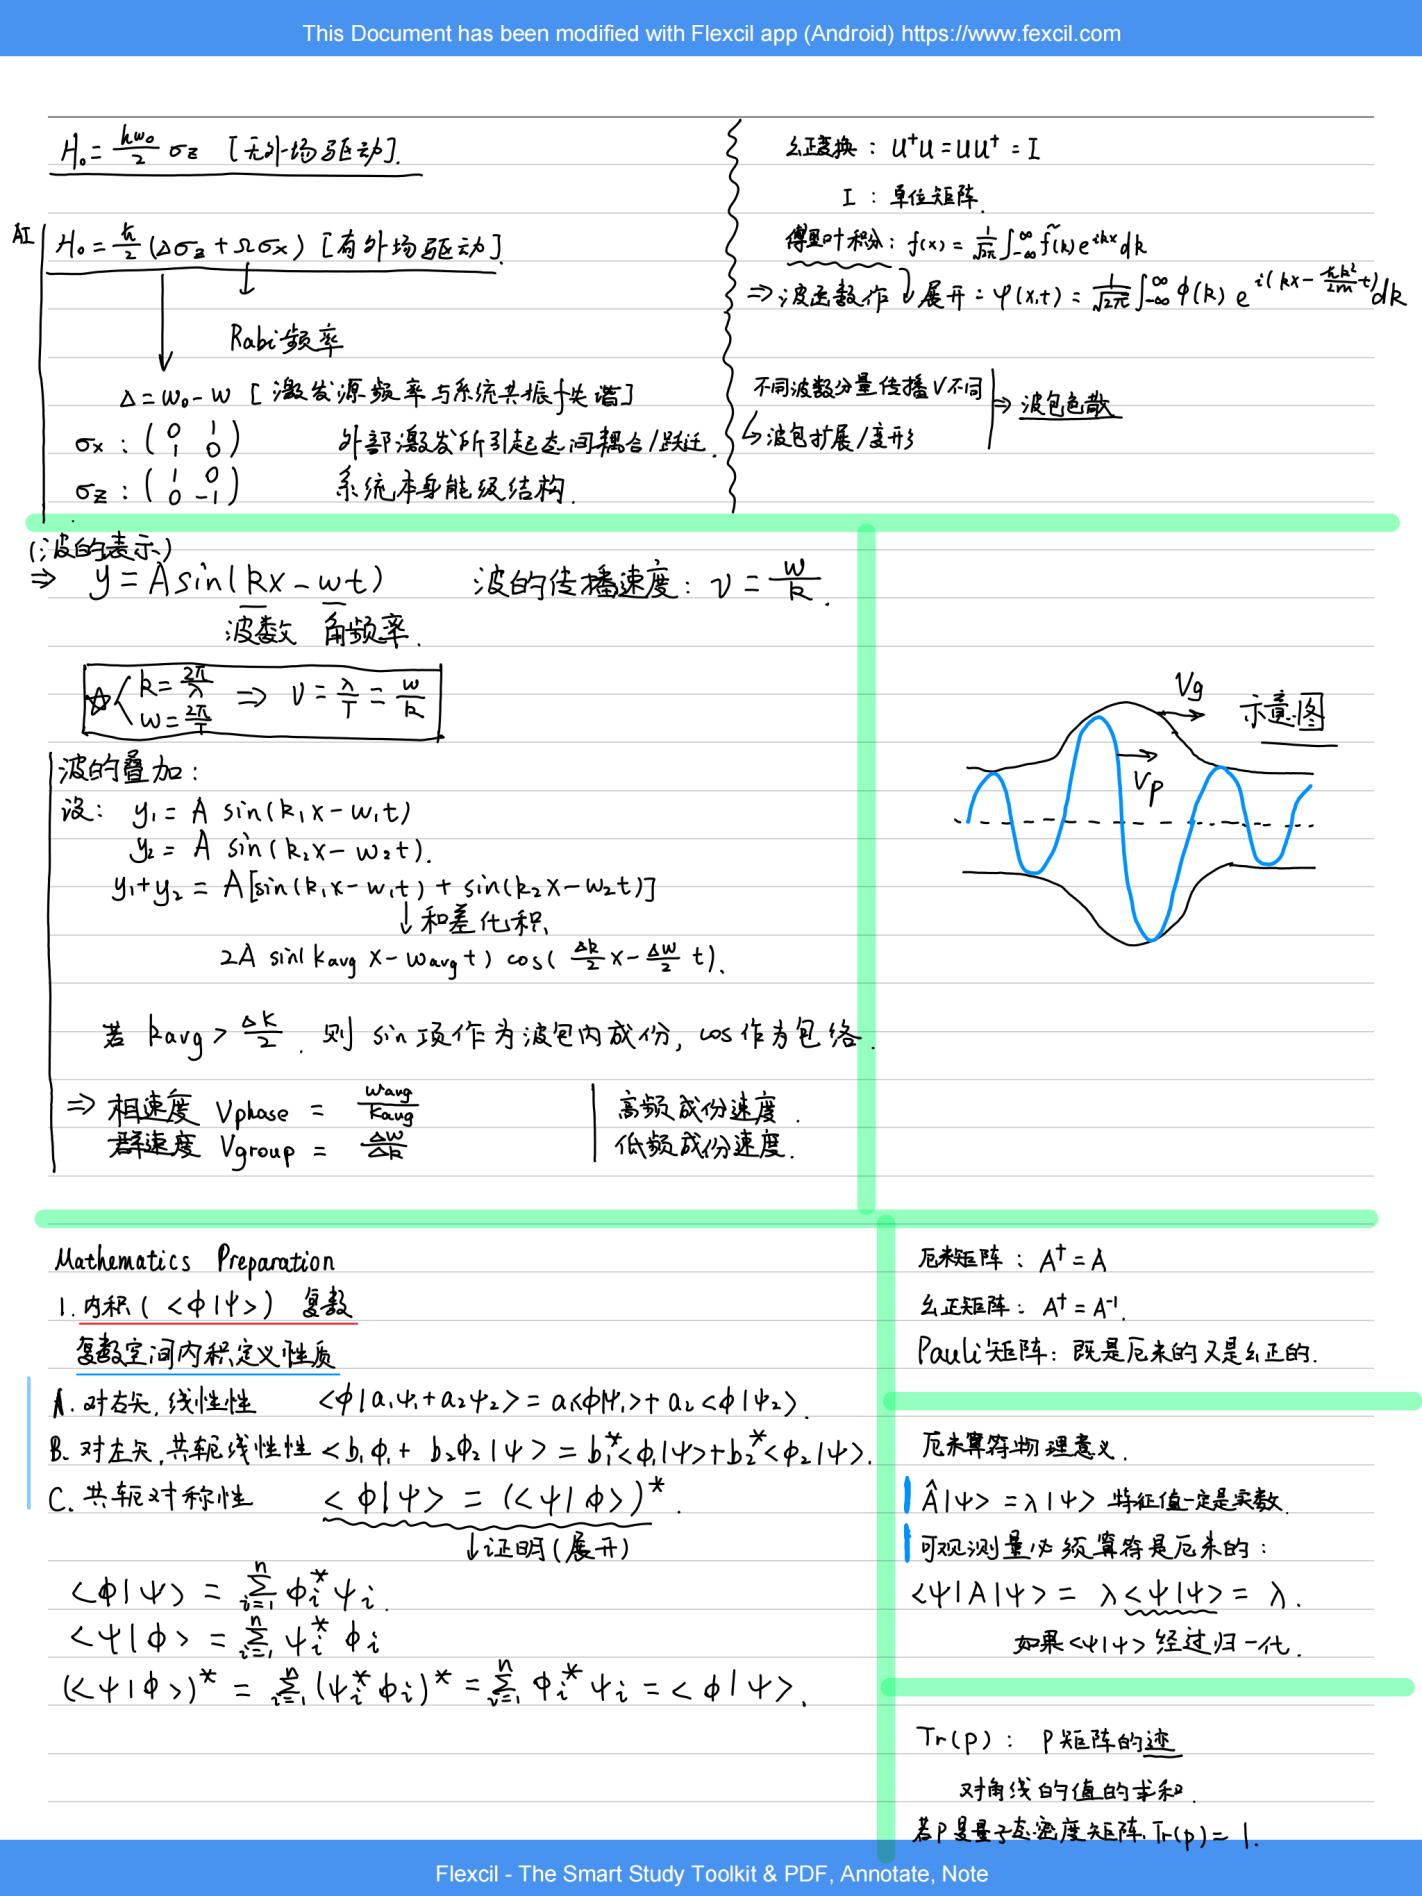 This Document has been modified with Flexcil app (Android) https://www.fexcil.com
H₀ = ħω₀/2 σz [无外场驱动].
AI
H₀ = ħ/2 (Δσz + Ωσx) [有外场驱动].
Rabi频率
Δ = ω₀ - ω [激发源频率与系统共振f失谐]
σx : (0 1 / 1 0) 外部激发所引起态间耦合/跃迁.
σz : (1 0 / 0 -1) 系统本身能级结构.
幺正变换 : U†U = UU† = I
I : 单位矩阵.
傅里叶积分 : f(x) = 1/√2π ∫_{-∞}^{∞} f̃(k) e^{ikx} dk
⇒ 波函数作 ↓ 展开 : φ(x,t) = 1/√2π ∫_{-∞}^{∞} φ(k) e^{i(kx - ħk²/2m t)} dk
不同波数分量传播V不同
↳ 波包扩展/变形
⇒ 波包色散
(波的表示)
⇒ y = A sin(kx - ωt) 波的传播速度 : v = ω/k.
波数 角频率.
☆ { k = 2π/λ
ω = 2π/T ⇒ v = λ/T = ω/k
波的叠加 :
设: y₁ = A sin(k₁x - ω₁t)
y₂ = A sin(k₂x - ω₂t).
y₁+y₂ = A[sin(k₁x - ω₁t) + sin(k₂x - ω₂t)]
↓ 和差化积
2A sin(kavg x - ωavg t) cos(Δk/2 x - Δω/2 t).
若 kavg > Δk/2. 则 sin项作为波包内成份, cos作为包络.
⇒ 相速度 Vphase = ωavg/kavg 高频成份速度.
群速度 Vgroup = Δω/Δk 低频成份速度.
Vg
示意图
Vp
Mathematics Preparation
1. 内积 (<φ|ψ>) 复数
复数空间内积定义性质
A. 对右矢, 线性性 <φ|a₁ψ₁+a₂ψ₂> = a₁<φ|ψ₁>+a₂<φ|ψ₂>.
B. 对左矢, 共轭线性性 <b₁φ₁+b₂φ₂|ψ> = b₁*<φ₁|ψ>+b₂*<φ₂|ψ>.
C. 共轭对称性 <φ|ψ> = (<ψ|φ>)*.
↓证明(展开)
<φ|ψ> = Σ_{i=1}^{n} φi* ψi.
<ψ|φ> = Σ_{i=1}^{n} ψi* φi
(<ψ|φ>)* = Σ_{i=1}^{n} (ψi* φi)* = Σ_{i=1}^{n} φi* ψi = <φ|ψ>.
厄米矩阵 : A† = A
幺正矩阵 : A† = A⁻¹.
Pauli矩阵: 既是厄米的又是幺正的.
厄米算符物理意义.
Â|ψ> = λ|ψ> 特征值一定是实数.
可观测量必须算符是厄米的 :
<ψ|A|ψ> = λ<ψ|ψ> = λ.
如果<ψ|ψ>经过归一化.
Tr(ρ) : ρ矩阵的迹
对角线的值的求和.
若ρ是量子态密度矩阵, Tr(ρ) = 1.
Flexcil - The Smart Study Toolkit & PDF, Annotate, Note